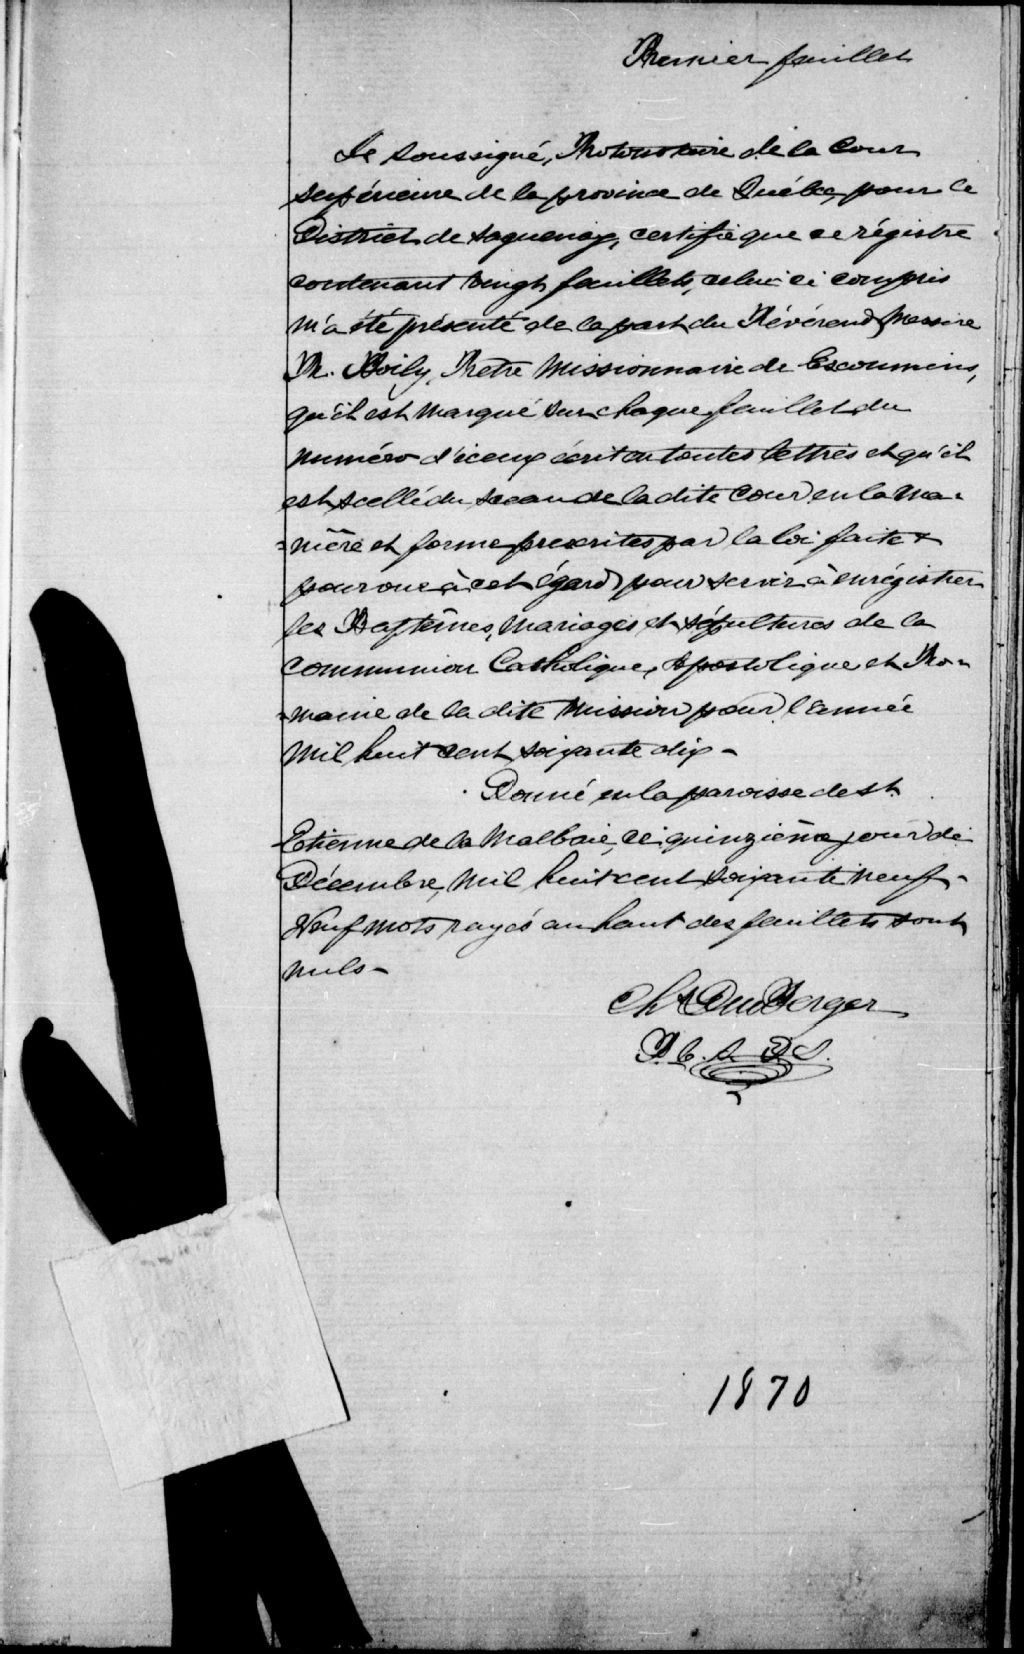 Premier feuillet
Je soussigné, Protonotaire de la Cour
supérieure de la province de Québec, pour le
District de Saguenay, certifie que ce régistre
contenant vingt feuillets, celui ci compris
m'a été présenté de la part du Révérend Messire
R. Boily, Prètre Missionnaire de Escoumins,
qu'il est marqué sur chaque feuillet du
numéro d'iceux écrit en toutes lettres et qu'il
est scellé du sceau de la dite Cour en la ma-
=nière et forme prescrites par la loi faite &
pourvue à cet égard pour servir à enrégistrer
les Baptêmes, Mariages et sépultures de la
communion Catholique, Apostolique et Ro-
=maine de la dite Mission pour l'année
Mil huit cent soixante dix -
Donné en la paroisse de St.
Etienne de la Malbaie, ce quinzième jour de
Décembre, Mil huit cent soixante neuf -
Neuf mots rayés au haut des feuillets sont
nuls -
Chs DuBerger
P. C. S. D. S.
1870